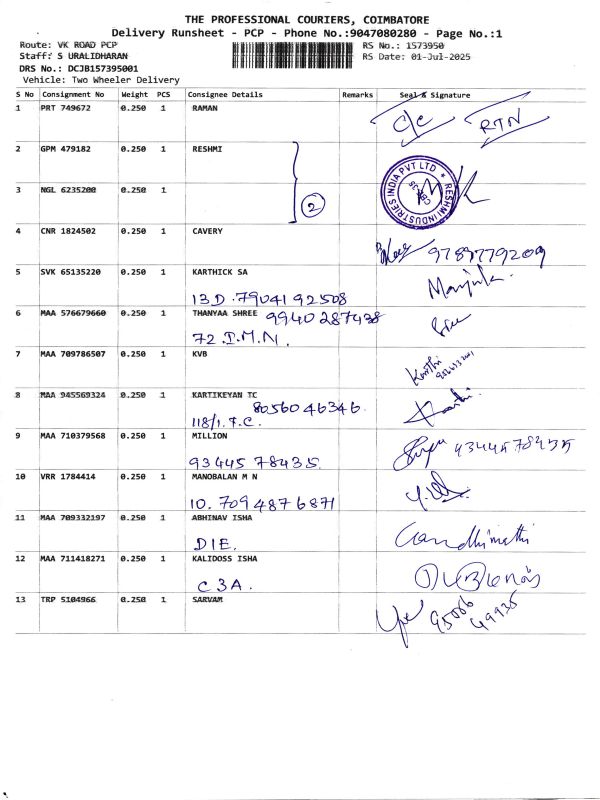 THE PROFESSIONAL COURIERS, COIMBATORE
Delivery Runsheet - PCP - Phone No.:9047080280 - Page No.:1
Route: VK ROAD PCP RS No.: 1573950
Staff: S URALIDHARAN RS Date: 01-Jul-2025
DRS No.: DCJB157395001
Vehicle: Two Wheeler Delivery
S No Consignment No Weight PCS Consignee Details Remarks Seal & Signature
1 PRT 749672 0.250 1 RAMAN C/C RTN
2 GPM 479182 0.250 1 RESHMI
3 NGL 6235200 0.250 1
2
RESHMI INDUSTRIES INDIA PVT LTD
CBE-35
4 CNR 1824502 0.250 1 CAVERY 9789779209
5 SVK 65135220 0.250 1 KARTHICK SA Manjula.
13D. 7904192508
6 MAA 576679660 0.250 1 THANYAA SHREE 9940287438
72.I.M.N.
7 MAA 709786507 0.250 1 KVB Karthi
8 MAA 945569324 0.250 1 KARTIKEYAN TC
8056046346.
118/1.T.C.
9 MAA 710379568 0.250 1 MILLION 9344578435
93445 78435.
10 VRR 1784414 0.250 1 MANOBALAN M N
10. 7094876871
11 MAA 709332197 0.250 1 ABHINAV ISHA Gandhimathi
D1E.
12 MAA 711418271 0.250 1 KALIDOSS ISHA
C3A.
13 TRP 5104966 0.250 1 SARVAM 95086
49935